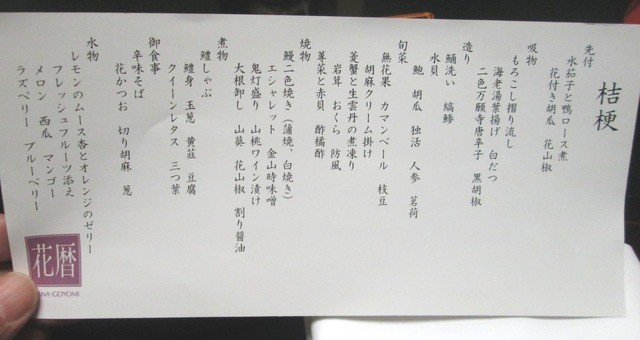 桔梗
先付
水茄子と鴨ロース煮
花付き胡瓜 花山椒
吸物
もろこし摺り流し
海老湯葉揚げ 白だつ
二色万願寺唐辛子 黒胡椒
造り
鯒洗い 縞鯵
水貝
鮑 胡瓜 独活 人参 茗荷
旬菜
無花果 カマンベール 枝豆
胡麻クリーム掛け
菱蟹と生雲丹の煮凍り
岩茸 おくら 防風
蓴菜と赤貝 酢橘酢
焼物
鰻二色焼き(蒲焼、白焼き)
エシャレット 金山時味噌
鬼灯盛り 山桃ワイン漬け
大根卸し 山葵 花山椒 割り醤油
煮物
鱧しゃぶ
鱧身 玉葱 黄韮 豆腐
クイーンレタス 三つ葉
御食事
辛味そば
花かつお 切り胡麻 葱
水物
レモンのムース杏とオレンジのゼリー
フレッシュフルーツ添え
メロン 西瓜 マンゴー
ラズベリー ブルーベリー
花暦
HANA-GOYOMI